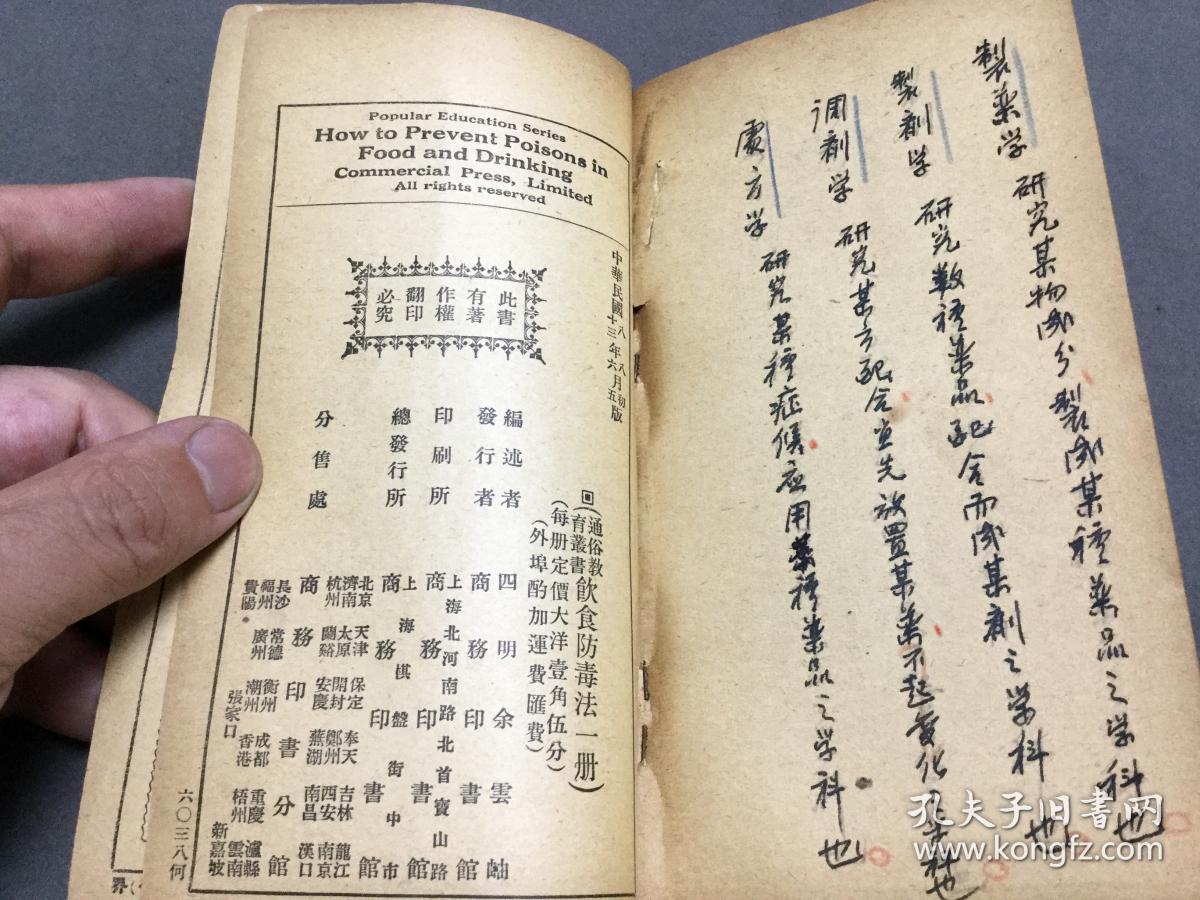 Popular Education Series
How to Prevent Poisons in
Food and Drinking
Commercial Press, Limited
All rights reserved
此書
有著
作權
翻印
必究
中華民國八年八月初版
十三年六月五版
回(通俗教育叢書)飲食防毒法一册)
(每册定價大洋壹角伍分)
(外埠酌加運費匯費)
編述者 四明余雲岫
發行者 商務印書館
印刷所 上海北河南路北首寶山路 商務印書館
總發行所 上海棋盤街中市 商務印書館
分售處
北京 天津 保定 奉天 吉林 龍江
濟南 太原 開封 鄭州 西安 南京
杭州 蘭谿 安慶 蕪湖 南昌 漢口
商務印書分館
長沙 常德 衡州 成都 重慶 瀘縣
福州 廣州 潮州 香港 梧州 雲南
貴陽 張家口 新嘉坡
六〇三八何
製薬学 研究某物成分製成某種薬品之学科也
製剤学 研究数種薬品配合而成某剤之学科也
调剤学 研究某方配合宜先放置某薬不起变化之学科也
處方学 研究某種症候应用某種薬品之学科也
孔夫子旧书网
www.kongfz.com